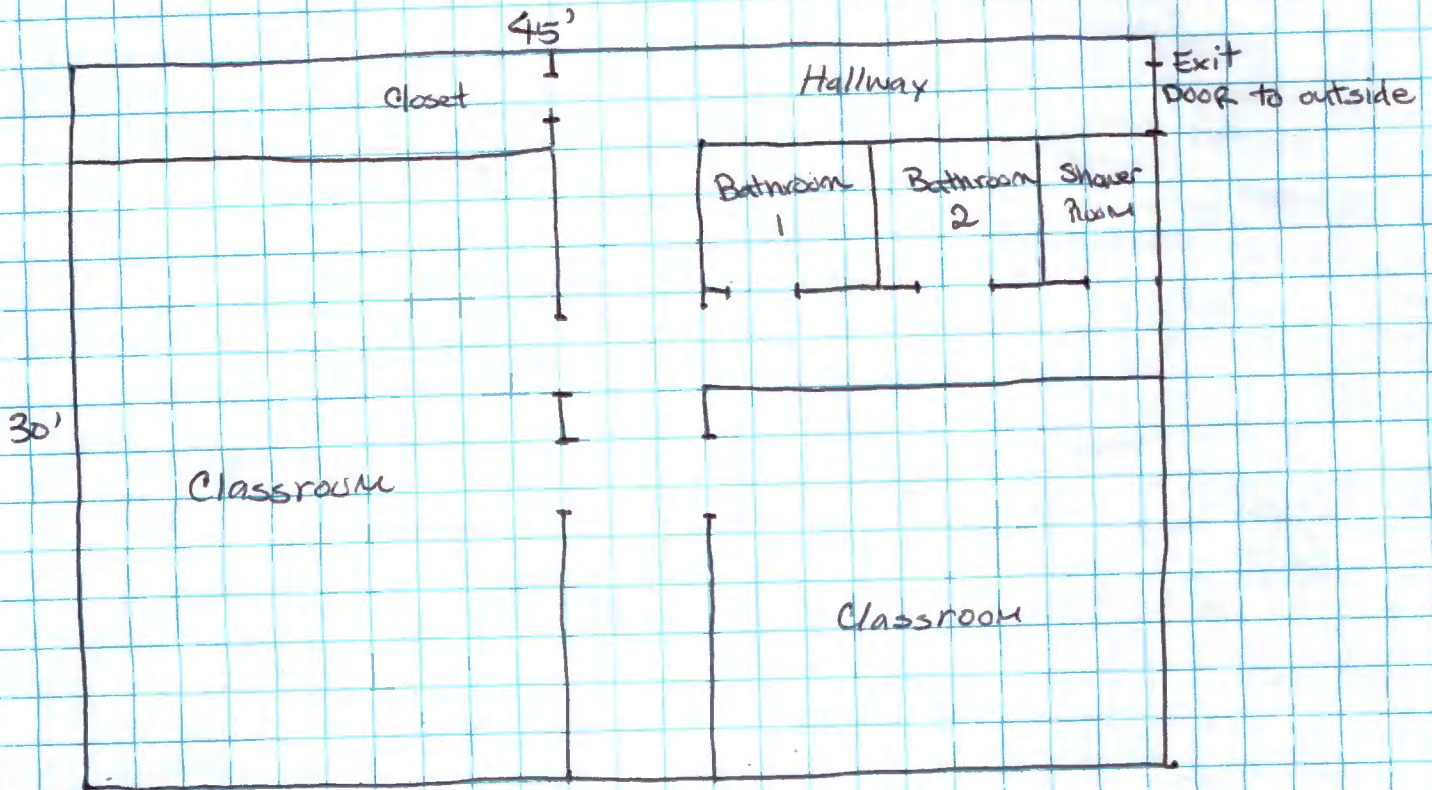 45'
Closet
Hallway
Exit
DOOR to outside
Bathroom
1
Bathroom
2
Shower
Room
30'
Classroom
Classroom